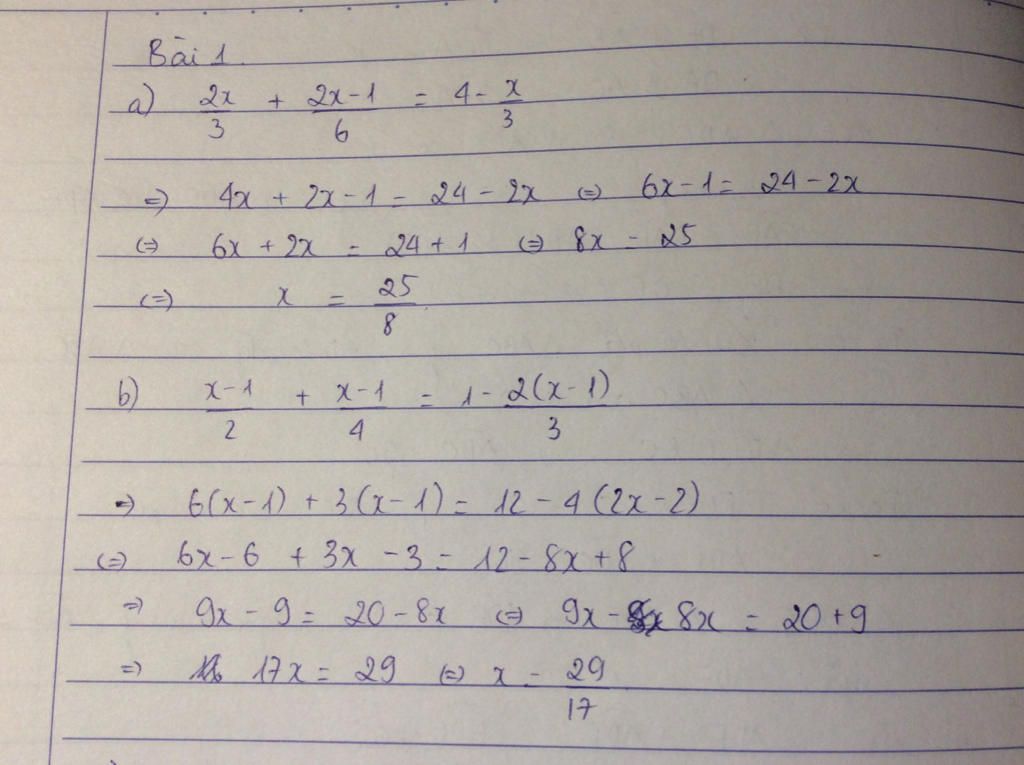 Bài 1.
a) 2x/3 + 2x-1/6 = 4 - x/3
=) 4x + 2x - 1 = 24 - 2x (=) 6x - 1 = 24 - 2x
(=) 6x + 2x = 24 + 1 (=) 8x = 25
(=) x = 25/8
b) x-1/2 + x-1/4 = 1 - 2(x-1)/3
=) 6(x-1) + 3(x-1) = 12 - 4(2x-2)
(=) 6x - 6 + 3x - 3 = 12 - 8x + 8
=) 9x - 9 = 20 - 8x (=) 9x - 8x = 20 + 9
=) 17x = 29 (=) x = 29/17